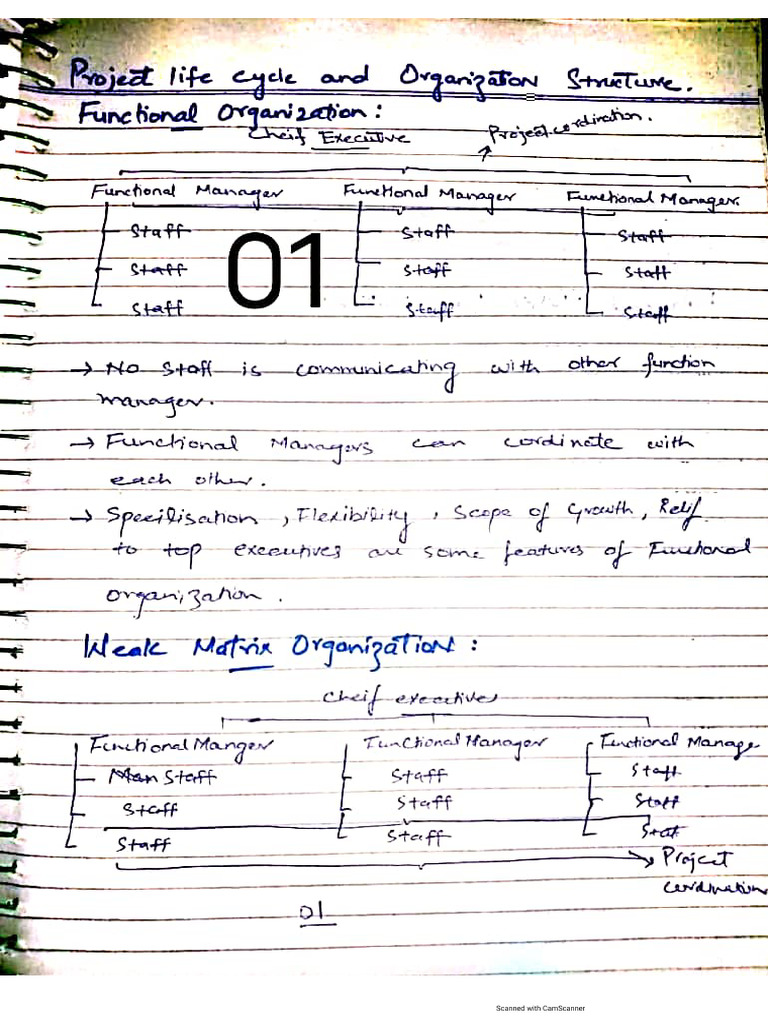 Project life cycle and Organization Structure.
Functional Organization:
Cheif Executive
Project cordination.
Functional Manager Functional Manager Functional Manager.
Staff Staff Staff
Staff Staff Staff
Staff Staff Staff
01
→ No Staff is communicating with other function
manager.
→ Functional Managers can cordinate with
each other.
→ Specilisation, Flexibility, Scope of Growth, Relif
to top executives are some features of Functional
organization.
Weak Matrix Organization:
Cheif executives
Functional Manger Functional Manager Functional Manage
Staff Staff Staff
Staff Staff Staff
Staff Staff Staf
→ Project
cordination
01
Scanned with CamScanner